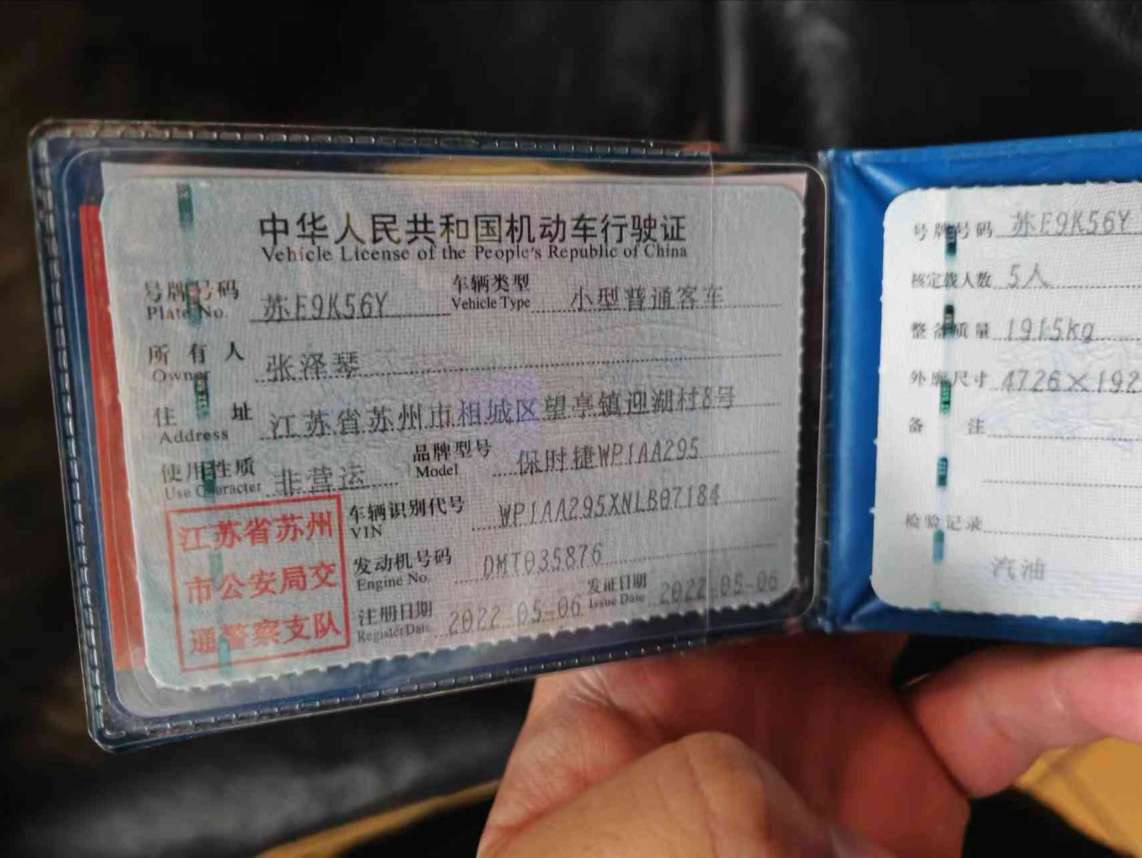 中华人民共和国机动车行驶证
Vehicle License of the People's Republic of China
号牌号码 苏E9K56Y 车辆类型 小型普通客车
Plate No. Vehicle Type
所有人 张泽琴
Owner
住址 江苏省苏州市相城区望亭镇迎湖村8号
Address
使用性质 非营运 品牌型号 保时捷WP1AA295
Use Character Model
车辆识别代号 WP1AA295XNLB07184
VIN
发动机号码 DMT035876
Engine No.
注册日期 2022-05-06 发证日期 2022-05-06
Register Date Issue Date
江苏省苏州
市公安局交
通警察支队
号牌号码 苏E9K56Y
核定载人数 5人
整备质量 1915kg
外廓尺寸 4726×192
备注
检验记录
汽油